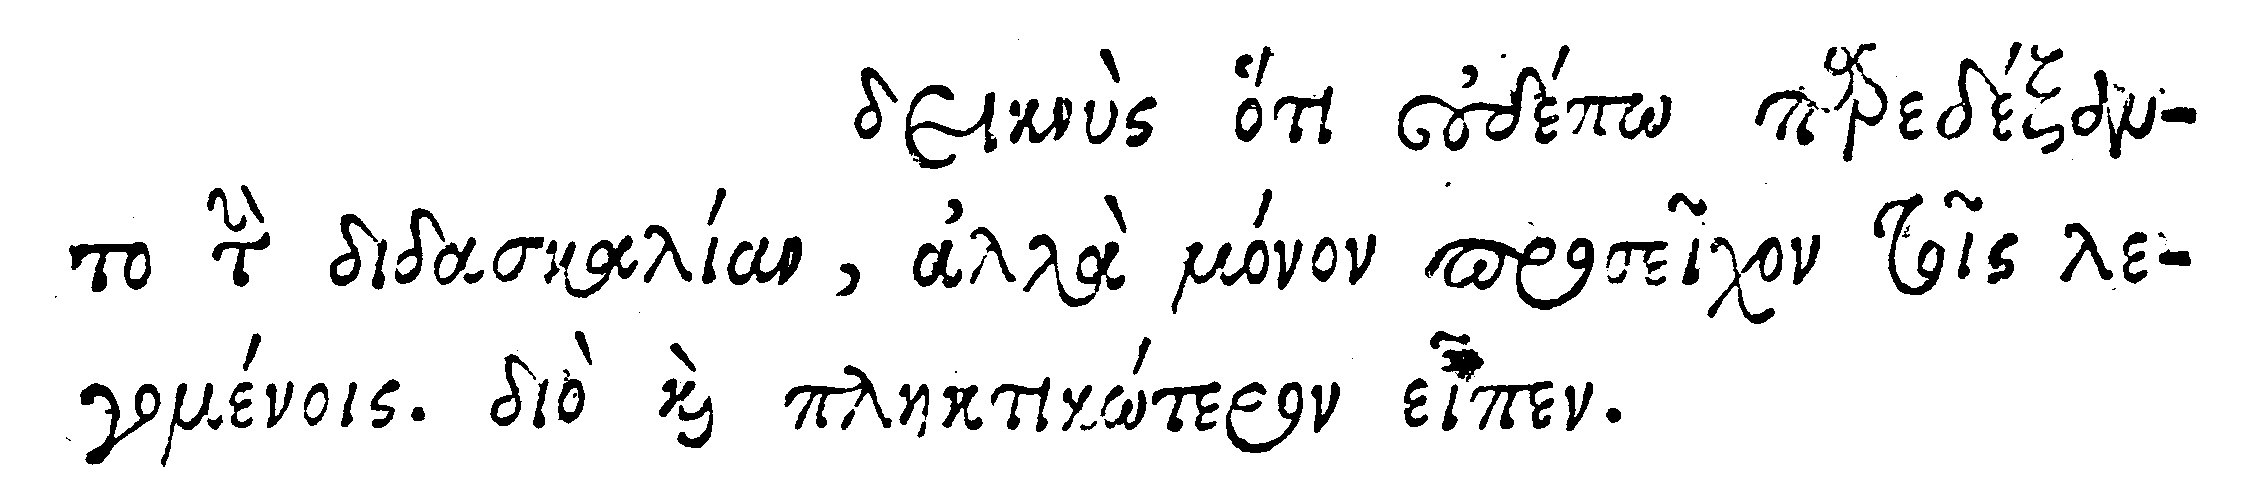 δεικνὺς ὅτι οὐδέπω παρεδέξαν-
το τὴν διδασκαλίαν, ἀλλὰ μόνον προσεῖχον τοῖς λε-
γομένοις. διὸ καὶ πληκτικώτερον εἶπεν.